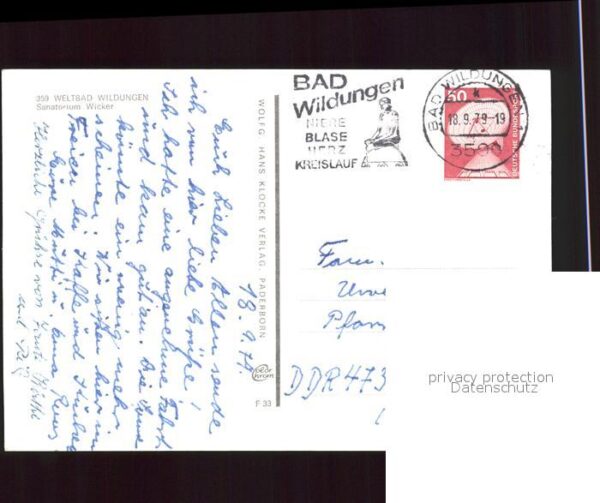 359 WELTBAD WILDUNGEN
Sanatorium Wicker
18. 9. 79.
Euch Lieben Allen sende
ich von hier liebe Grüße!
Ich hatte eine angenehme Fahrt
und kam gut an. Die Sonne
könnte ein wenig mehr
scheinen. Wir sitzen hier im
Freien bei Kaffee und
Eure Mutti u. Oma
Herzliche Grüße von
und
WOLFG. HANS KLOCKE VERLAG, PADERBORN
F 33
BAD
Wildungen
NIERE
BLASE
HERZ
KREISLAUF
BAD WILDUNGEN 1
18.9.79-19
3590
60
DEUTSCHE BUNDESPOST
Fam.
DDR 473
privacy protection
Datenschutz